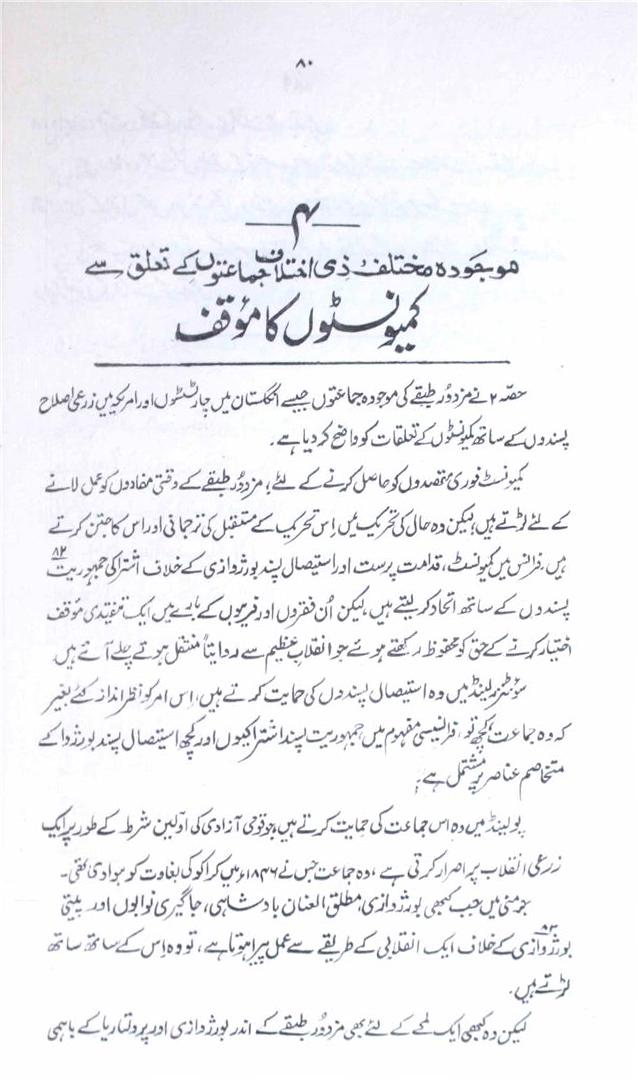 ۸۰
۴
موجودہ مختلف ذی اختلاف جماعتوں کے تعلق سے
کمیونسٹوں کا مؤقف
حصّہ ۲ نے مزدور طبقے کی موجودہ جماعتوں جیسے انگلستان میں چارٹسٹوں اور امریکہ میں زرعی اصلاح
پسندوں کے ساتھ کمیونسٹوں کے تعلقات کو واضح کر دیا ہے۔
کمیونسٹ فوری مقصدوں کو حاصل کرنے کے لئے، مزدور طبقے کے وقتی مفادوں کو عمل لانے
کے لئے لڑتے ہیں، لیکن وہ حال کی تحریک میں اِس تحریک کے مستقبل کی ترجمانی اور اس کا جتن کرتے
ہیں، فرانس میں کمیونسٹ، قدامت پرست اور استیصال پسند بورژوازی کے خلاف اشتراکی جمہوریت ۸۲
پسندوں کے ساتھ اتحاد کر لیتے ہیں، لیکن اُن فقروں اور فریبوں کے بارے میں ایک تنقیدی موقف
اختیار کرنے کے حق کو محفوظ رکھتے ہوئے جو انقلابِ عظیم سے روایتاً منتقل ہوتے چلے آتے ہیں
سوئٹزرلینڈ میں وہ استیصال پسندوں کی حمایت کرتے ہیں، اِس امر کو نظر انداز کئے بغیر
کہ وہ جماعت کچھ تو، فرانسیسی مفہوم میں جمہوریت پسند اشتراکیوں اور کچھ استیصال پسند بورژوا کے
متخاصم عناصر پر مشتمل ہے۔
پولینڈ میں وہ اس جماعت کی حمایت کرتے ہیں، جو قومی آزادی کی اوّلین شرط کے طور پر ایک
زرعی انقلاب پر اصرار کرتی ہے، وہ جماعت جس نے ۱۸۴۶ء میں کراکو کی بغاوت کو ہوا دی تھی۔
جرمنی میں جب کبھی بورژوازی، مطلق العنان بادشاہی، جاگیری نوابوں اور پیٹی
بورژوازی ۸۳ کے خلاف ایک انقلابی کے طریقے سے عمل پیرا ہوتا ہے، تو وہ اِس کے ساتھ ساتھ
لڑتے ہیں۔
لیکن وہ کبھی ایک لمحے کے لئے بھی مزدور طبقے کے اندر بورژوازی اور پرولتاریا کے باہمی